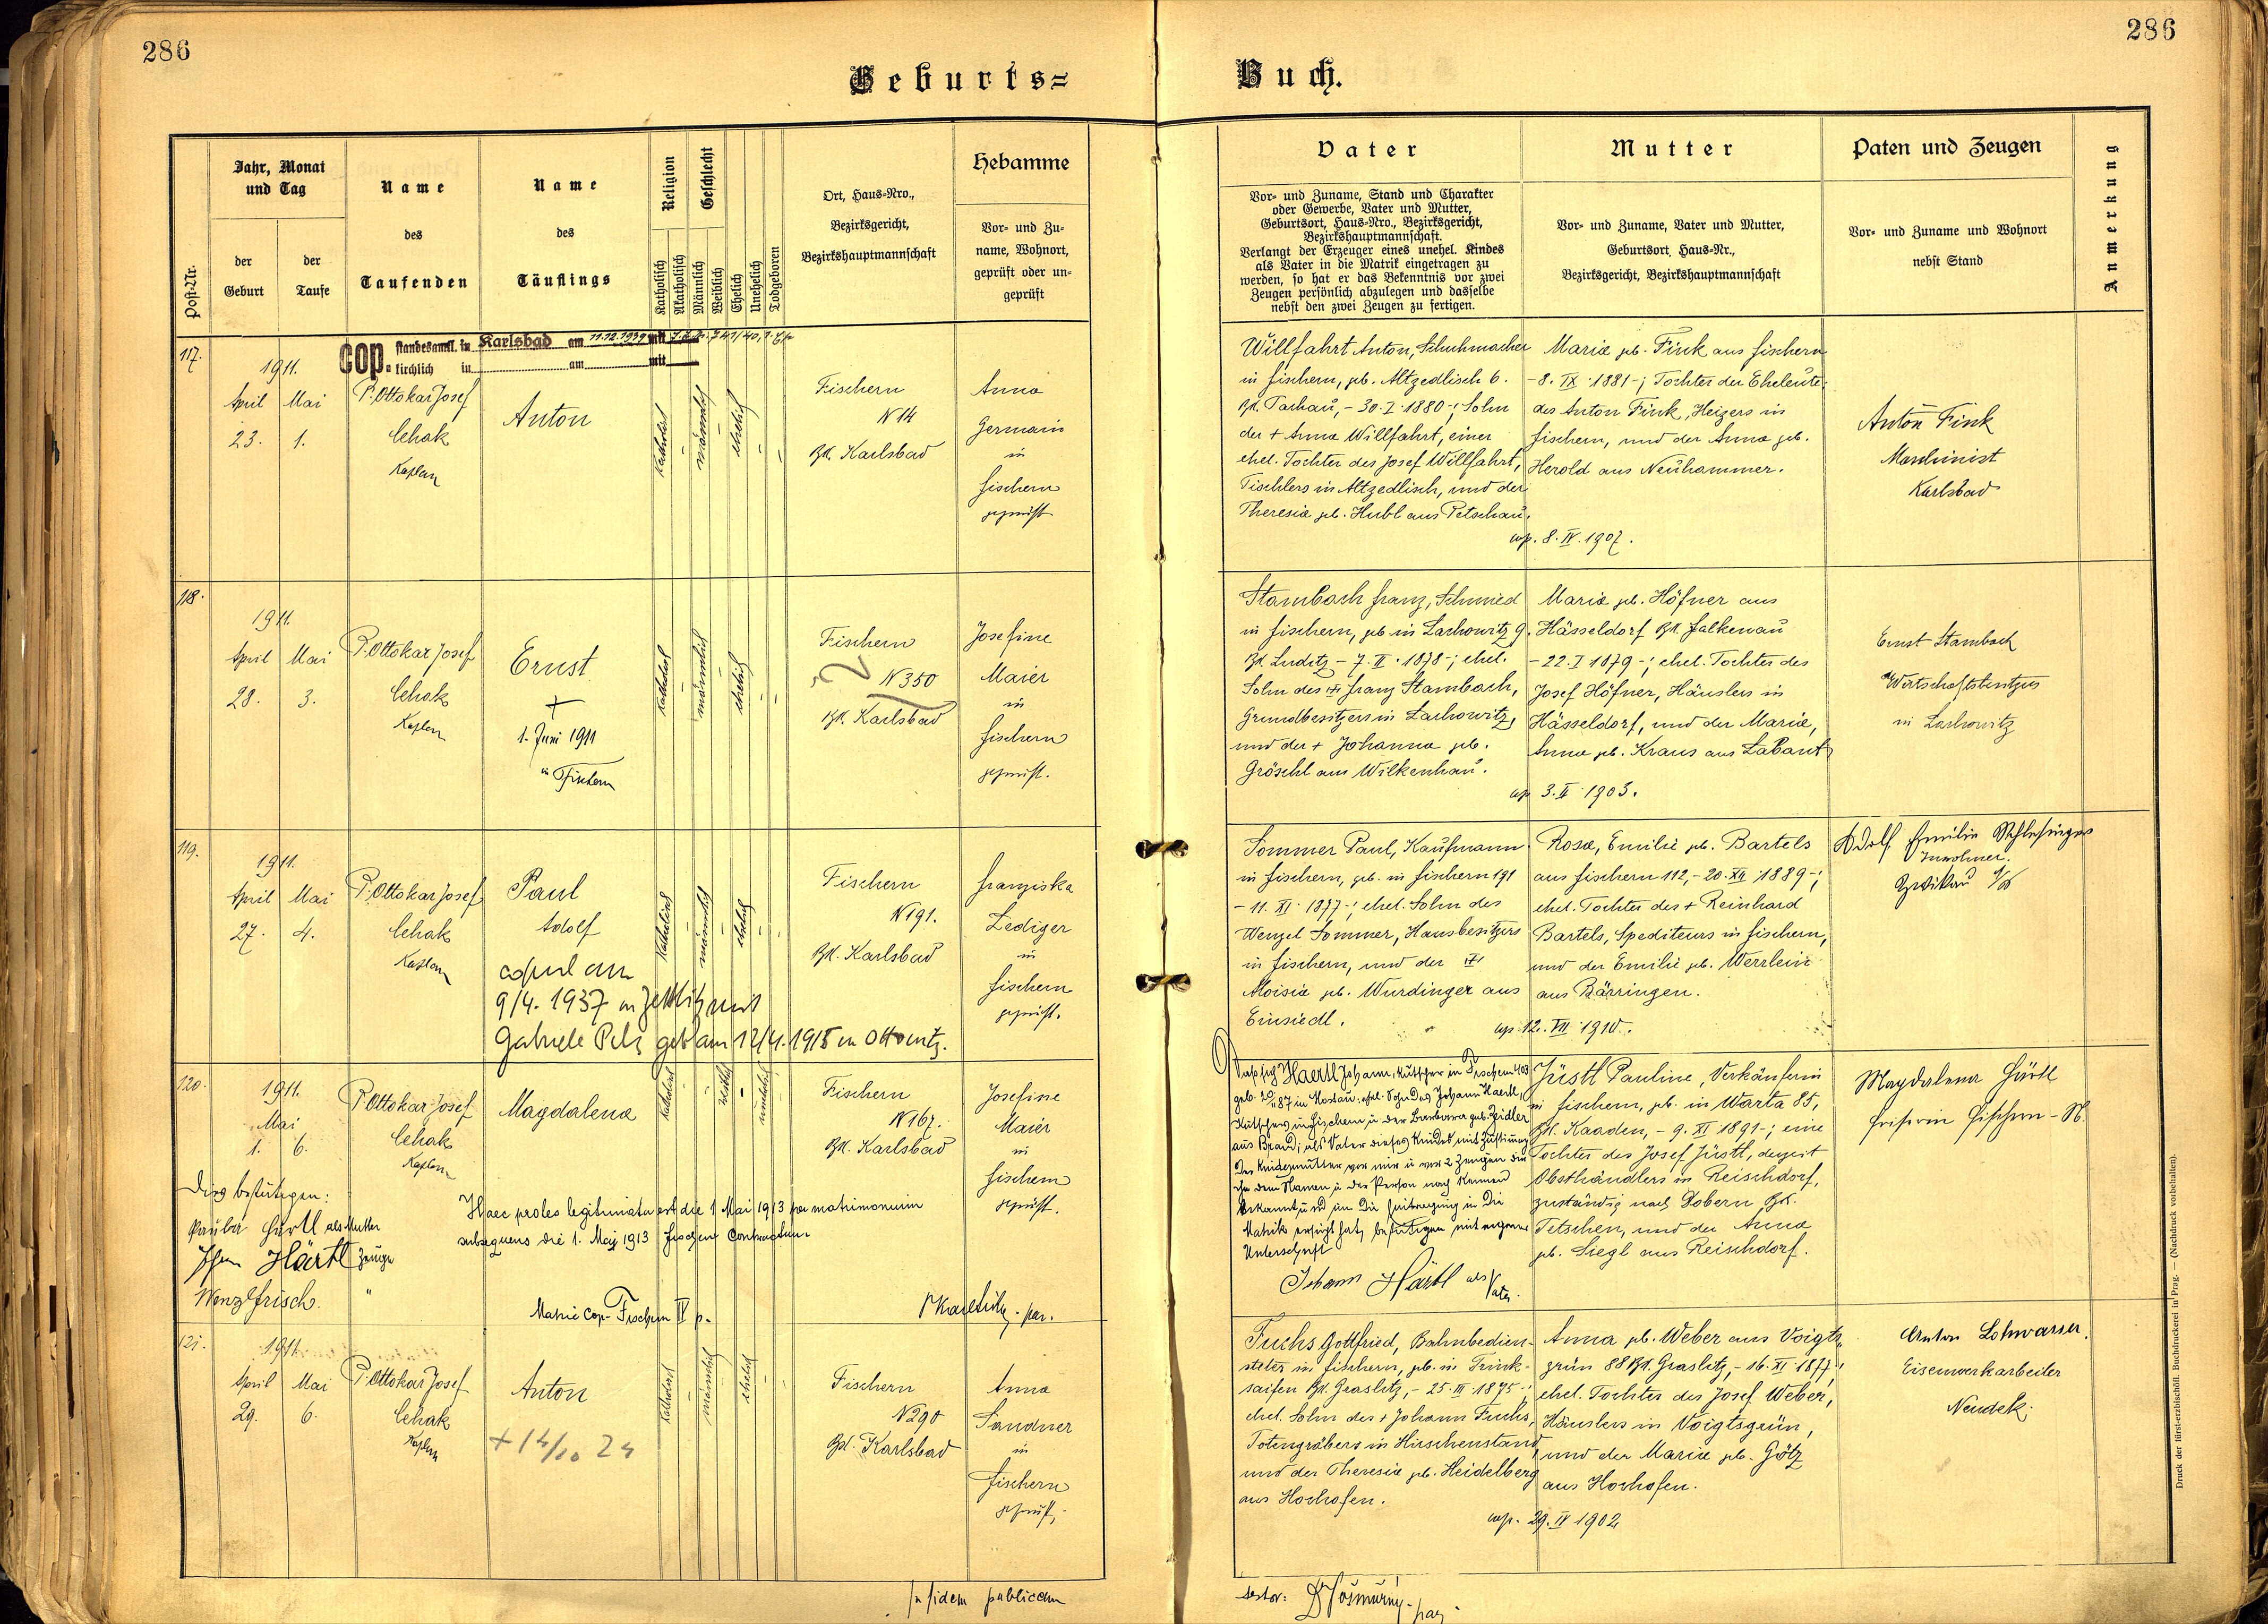 286
286
Geburts=
Buch.
Post-Nr.
Jahr, Monat
und Tag
der
Geburt
der
Taufe
Name
des
Taufenden
Name
des
Täuflings
Religion
Katholisch
Akatholisch
Geschlecht
Männlich
Weiblich
Ehelich
Unehelich
Todgeboren
Ort, Haus=Nro.,
Bezirksgericht,
Bezirkshauptmannschaft
Hebamme
Vor= und Zu=
name, Wohnort,
geprüft oder un=
geprüft
Vater
Vor= und Zuname, Stand und Charakter
oder Gewerbe, Vater und Mutter,
Geburtsort, Haus=Nro., Bezirksgericht,
Bezirkshauptmannschaft.
Verlangt der Erzeuger eines unehel. Kindes
als Vater in die Matrik eingetragen zu
werden, so hat er das Bekenntnis vor zwei
Zeugen persönlich abzulegen und dasselbe
nebst den zwei Zeugen zu fertigen.
Mutter
Vor= und Zuname, Vater und Mutter,
Geburtsort, Haus=Nr.,
Bezirksgericht, Bezirkshauptmannschaft
Paten und Zeugen
Vor= und Zuname und Wohnort
nebst Stand
Anmerkung
117.
cop. standesamtl. in Karlsbad am 11.12.1939 mit
kirchlich in am mit
1911.
April Mai
23. 1.
P. Ottokar Josef
Cehak
Kaplan
Anton
katholisch
männlich
ehelich
Fischern
N 14
Bh. Karlsbad
Anna
Germain
in
Fischern
geprüft
Willfahrt Anton, Schuhmacher
in Fischern, geb. Altzedlisch 6.
Bh. Tachau, - 30. I. 1880 -; Sohn
der + Anna Willfahrt, einer
ehel. Tochter des Josef Willfahrt,
Tischlers in Altzedlisch, und der
Theresia geb. Hubl aus Petschau.
Maria geb. Fink aus Fischern
- 8. IX. 1881 -; Tochter der Eheleute
des Anton Fink, Heizers in
Fischern, und der Anna geb.
Herold aus Neuhammer.
cop. 8. IV. 1907.
Anton Fink
Maschinist
Karlsbad
118.
1911.
April Mai
28. 3.
P. Ottokar Josef
Cehak
Kaplan
Ernst
+
1. Juni 1911
in Fischern
katholisch
männlich
ehelich
Fischern
N 350
Bh. Karlsbad
Josefine
Maier
in
Fischern
geprüft.
Stambach Franz, Schmied
in Fischern, geb. in Lachowitz 9.
Bh. Luditz - 7. II. 1878 -; ehel.
Sohn des Franz Stambach,
Grundbesitzers in Lachowitz,
und der + Johanna geb.
Gröschl aus Wilkenhau.
Maria geb. Höfner aus
Hässeldorf Bh. Falkenau
- 22. I 1879 -; ehel. Tochter des
Josef Höfner, Häuslers in
Hässeldorf, und der Maria,
Anna geb. Kraus aus Labant
cop. 3. II 1903.
Ernst Stambach
Wirtschaftsbesitzer
in Lachowitz
119.
1911.
April Mai
27. 4.
P. Ottokar Josef
Cehak
Kaplan
Paul
Adolf
copul am
9/4. 1937 in Zettlitz mit
Gabriele Pelz geb am 12/4. 1915 in Ottowitz.
katholisch
männlich
ehelich
Fischern
N 191.
Bh. Karlsbad
Franziska
Lediger
in
Fischern
geprüft.
Sommer Paul, Kaufmann
in Fischern, geb. in Fischern 191
- 11. XI. 1877 -; ehel. Sohn des
Wenzel Sommer, Hausbesitzers
in Fischern, und der
Aloisia geb. Wurdinger aus
Einsiedl.
Rosa, Emilie geb. Bartels
aus Fischern 112, - 20. XII 1889 -;
ehel. Tochter des + Reinhard
Bartels, Spediteurs in Fischern,
und der Emilie geb. Werrlein
aus Bärringen.
cop. 12. VII. 1910.
Adolf Emilie Schlesinger
Inwohner.
Zwickau
120.
1911.
Mai
1. 6.
P. Ottokar Josef
Cehak
Kaplan
Magdalena
katholisch
weiblich
unehelich
Fischern
N 167.
Bh. Karlsbad
Josefine
Maier
in
Fischern
geprüft.
Dies bestätigen:
Härtl als Mutter
Härtl Zeuge
Wenzl Frisch. "
Haec proles legitimata est die 1 Mai 1913 per matrimonium
subsequens die 1. Maj 1913 Fischern contractum
Matric cop. Fischern IV p.
Daß sich Haertl Johann, Kutscher in Fischern 403
ehel. Sohn des Johann Haertl,
Kutschers in Fischern u. der Barbara geb. Zeidler
aus Brand; als Vater dieses Kindes mit Zustimmung
der Kindesmutter vor mir u. vor 2 Zeugen die
ihn dem Namen u. der Person nach kennen
bekannt und um die Eintragung in die
Matrik ersucht hat, bestätigen mit eigener
Unterschrift
Johann Härtl als Vater.
Jüstl Pauline, Verkäuferin
in Fischern, geb. in Warta 85,
Bh. Kaaden, - 9. XI 1891 -; eine
Tochter des Josef Jüstl, derzeit
Obsthändlers in Reischdorf,
zuständig nach Dobern Bh.
Tetschen, und der Anna
geb. Siegl aus Reischdorf.
Magdalena Härtl
Friserin Fischern
121.
1911.
April Mai
29. 6.
P. Ottokar Josef
Cehak
Kaplan
Anton
+ 14/10 24
katholisch
männlich
ehelich
Fischern
N 290
Bh. Karlsbad
Anna
Sandner
in
Fischern
geprüft.
Fuchs Gottfried, Bahnbedien-
steter in Fischern, geb. in Trink-
saifen Bh. Graslitz, - 25. III. 1875 -;
ehel. Sohn des + Johann Fuchs,
Totengräbers in Hirschenstand,
und der Theresia geb. Heidelberg
aus Hochofen.
Anna geb. Weber aus Voigts-
grün 88 Bh. Graslitz, - 16. XI 1877 -;
ehel. Tochter des Josef Weber,
Häuslers in Voigtsgrün,
und der Maria geb. Götz
aus Hochofen.
cop. 29. IV 1902
Anton Lohwasser.
Eisenwerkarbeiter
Neudek.
In fidem publicam
Druck der fürst-erzbischöfl. Buchdruckerei in Prag. — (Nachdruck vorbehalten).